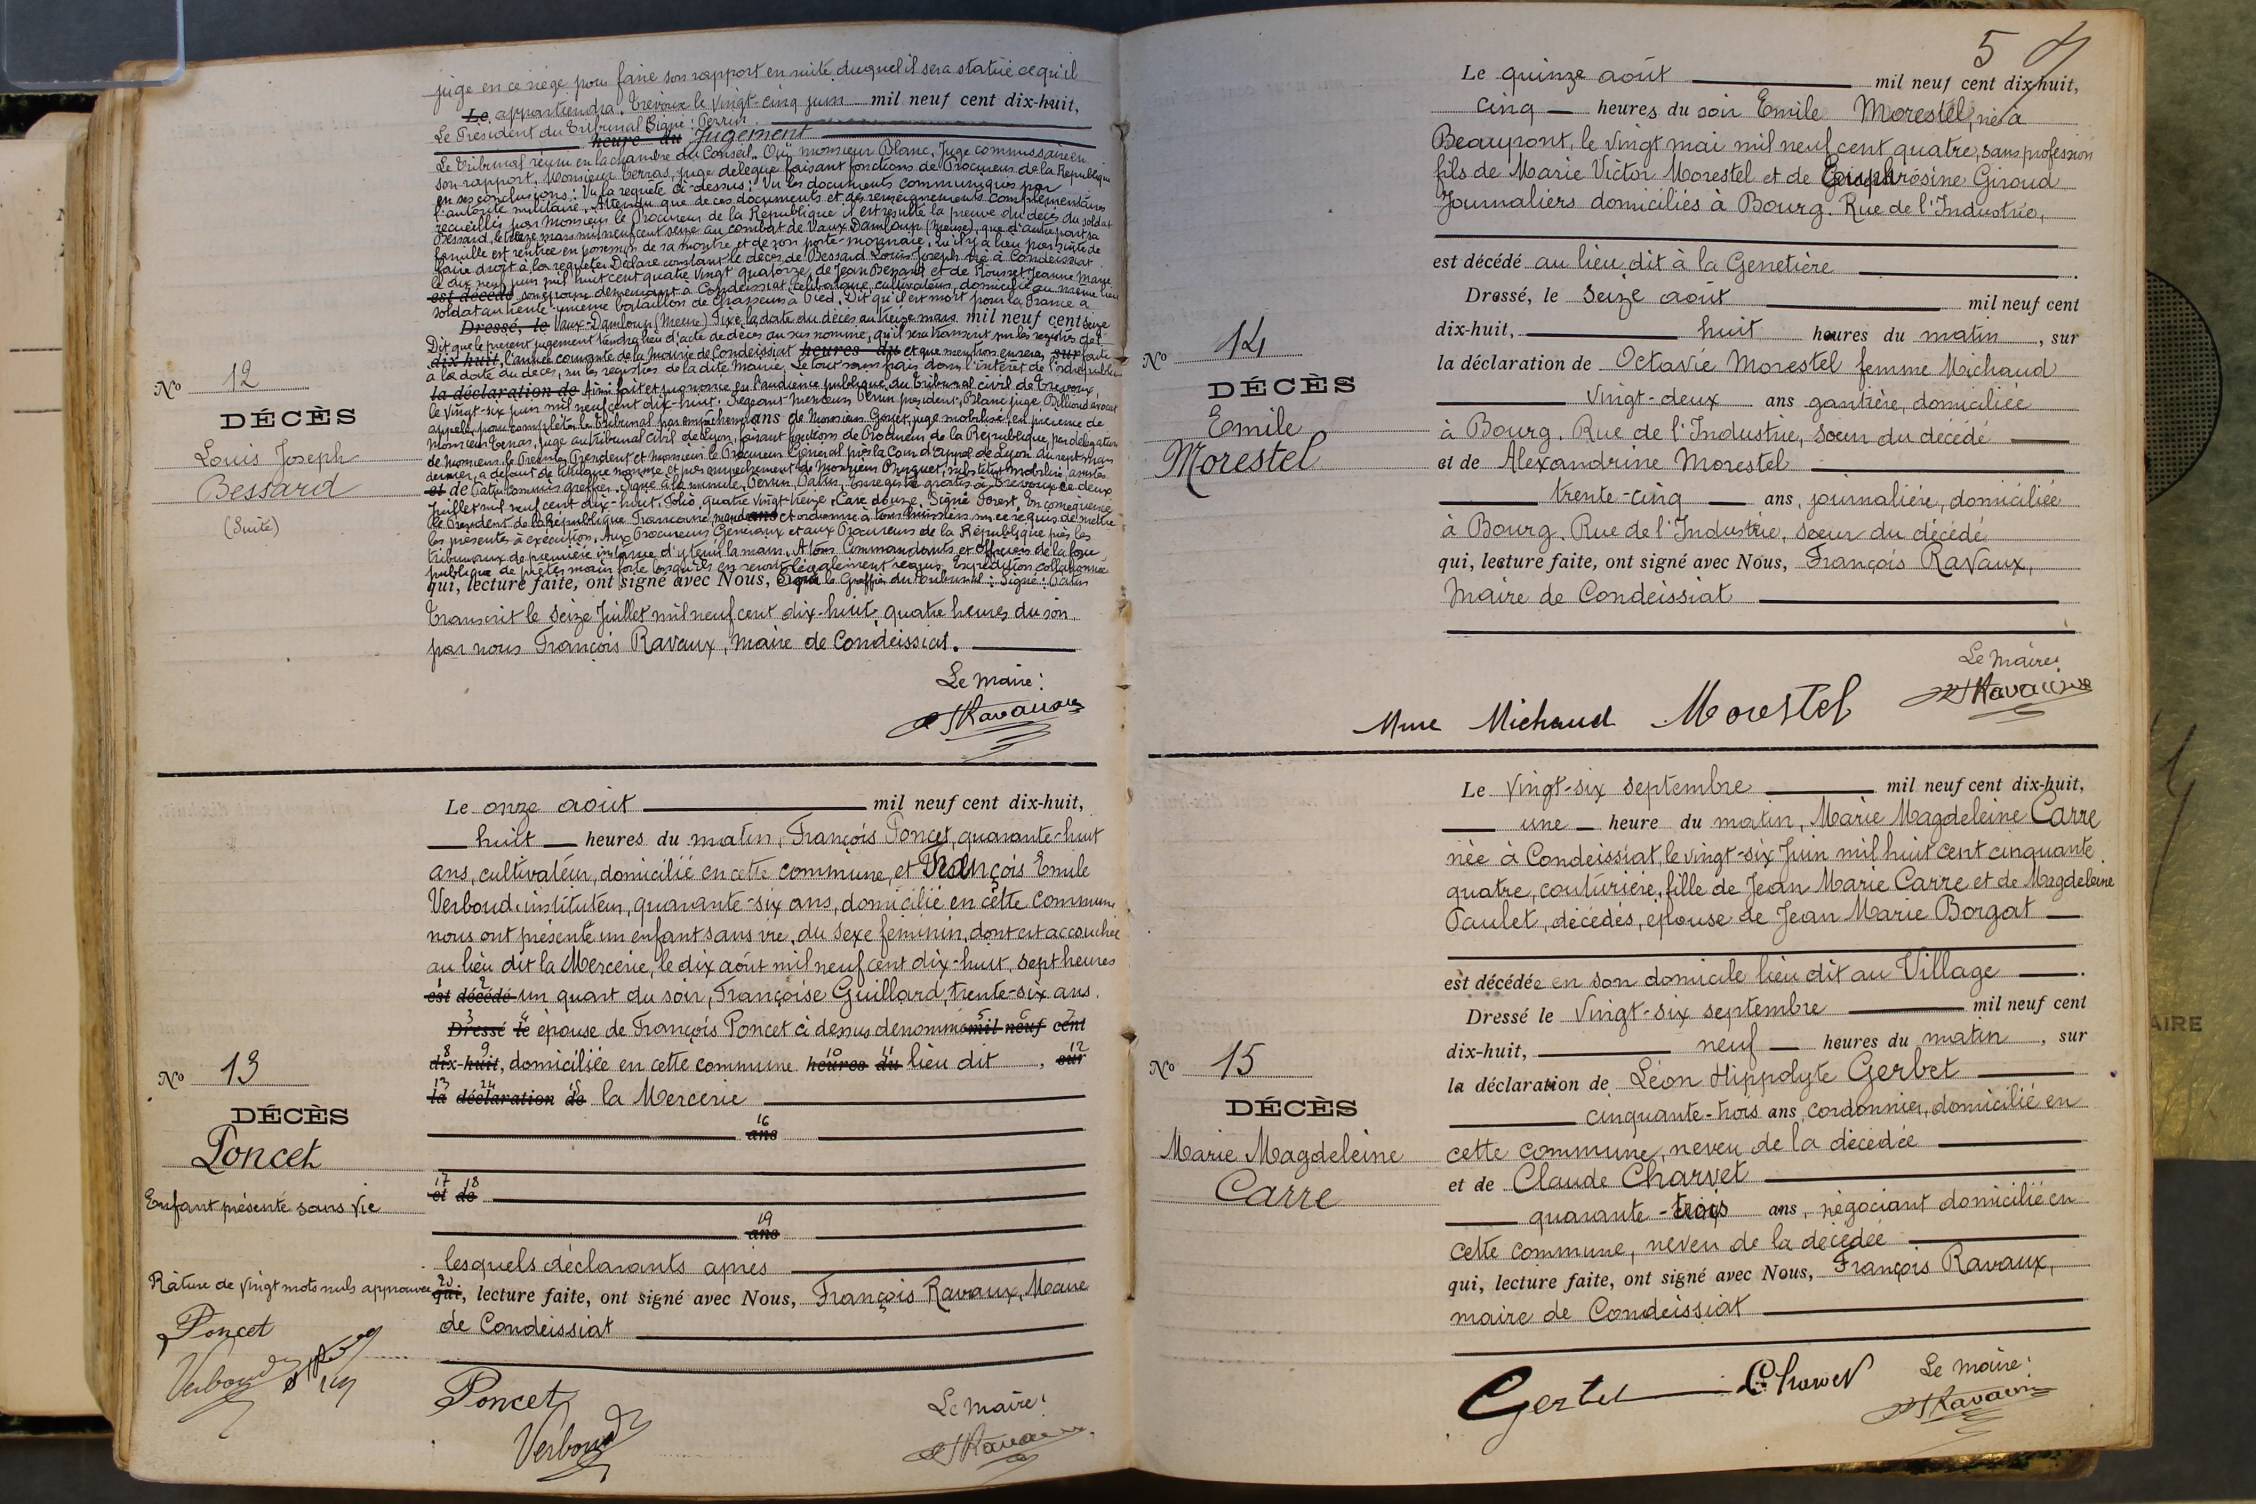 juge en ce siège pour faire son rapport en suite duquel il sera statué ce qu'il
Le appartiendra. Trévoux le vingt-cinq juin mil neuf cent dix-huit,
Le Président du Tribunal Signé: Perrin.
heure du Jugement
Le Tribunal réuni en la chambre du Conseil. Ouï monsieur Blanc, Juge commissaire en
son rapport, Monsieur Terras, juge délégué faisant fonctions de Procureur de la République
en ses conclusions: Vu la requête ci-dessus: Vu les documents communiqués par
l'autorité militaire, Attendu que de ces documents et des renseignements complémentaires
recueillis par Monsieur le Procureur de la République il est résulté la preuve du décès du soldat
Bessard, le treize mars mil neuf cent seize au combat de Vaux Damloup (Meuse), que d'autre part sa
famille est rentrée en possession de sa montre et de son porte-monnaie, qu'il y a lieu par suite de
faire droit à la requête. Déclare constant le décès de Bessard Louis Joseph né à Condeissiat
le dix neuf juin mil huit cent quatre vingt quatorze, de Jean Bessard et de Rousset Jeanne Marie
est décédé son épouse demeurant à Condeissiat, célibataire, cultivateur, domicilié au même lieu
soldat au trente-unième bataillon de Chasseurs à Pied. Dit qu'il est mort pour la France à
Dressé, le Vaux-Damloup (Meuse) Fixe la date du décès au treize mars mil neuf cent seize
Dit que le présent jugement tiendra lieu d'acte de décès du sus nommé, qu'il sera transcrit sur les registres de
dix-huit, l'année courante de la Mairie de Condeissiat heures du et que mention en sera sur faite
à la date du décès, sur les registres de la dite Mairie, Le tout sans frais dans l'intérêt de l'ordre public
la déclaration de Ainsi fait et prononcé en l'audience publique du tribunal civil de Trévoux,
le vingt-six juin mil neuf cent dix-huit. Siégeant Messieurs Perrin président, Blanc juge, Billioud avocat
appelé pour compléter le Tribunal par empêchement ans de Monsieur Goujet, juge mobilisé, en présence de
Monsieur Terras, juge au tribunal civil de Lyon, faisant fonctions de Procureur de la République, par délégation
de Monsieur le Premier Président et Monsieur le Procureur Général près la Cour d'Appel de Lyon du sept mars
dernier, à défaut de titulaire nommé et par empêchement de Monsieur substitut mobilisé, assistés
et de Patin commis greffier. Signé à la minute, Perrin, Patin, Enregistré gratis à Trévoux le deux
Juillet mil neuf cent dix-huit, Folio quatre vingt-treize, Case douze, Signé Forest. En conséquence
le Président de la République Française, mande ans et ordonne à tous huissiers sur ce requis de mettre
les présentes à exécution, Aux Procureurs Généraux et aux Procureurs de la République près les
tribunaux de première instance d'y tenir la main, A tous Commandants et Officiers de la force
publique de prêter main forte lorsqu'ils en seront légalement requis. Expédition collationnée
qui, lecture faite, ont signé avec Nous, Signé le Greffier du tribunal: Signé: Patin
Transcrit le seize Juillet mil neuf cent dix-huit, quatre heures du soir
par nous François Ravaux, Maire de Condeissiat.
Le Maire:
Ravaux
No 12
DÉCÈS
Louis Joseph
Bessard
(Suite)
Le onze août mil neuf cent dix-huit,
huit heures du matin, François Poncet, quarante-huit
ans, cultivateur, domicilié en cette commune, et François Emile
Verboud, instituteur, quarante-six ans, domicilié en cette commune
nous ont présenté un enfant sans vie, du sexe féminin, dont est accouchée
au lieu dit la Mercerie, le dix août mil neuf cent dix-huit, sept heures
1 2
est décédé un quart du soir, Françoise Guillard, trente-six ans,
3 4 5 6 7
Dressé le épouse de François Poncet ci dessus dénommé mil neuf cent
8 9 10 11 12
dix-huit, domiciliée en cette commune heures du lieu dit, sur
13 14 15
la déclaration de la Mercerie
16
ans
17 18
et de
19
ans
lesquels déclarants après
20
qui, lecture faite, ont signé avec Nous, François Ravaux, Maire
de Condeissiat
No 13
DÉCÈS
Poncet
Enfant présenté sans vie
Rature de vingt mots nuls approuvée
Poncet
Verboud
Poncet
Verboud
Le Maire:
Ravaux
5
Le quinze août mil neuf cent dix-huit,
cinq heures du soir Emile Morestel, né à
Beaupont, le vingt mai mil neuf cent quatre, sans profession
fils de Marie Victor Morestel et de Euphrosine Giroud
Journaliers domiciliés à Bourg, Rue de l'Industrie,
est décédé au lieu dit à la Genetière.
Dressé, le seize août mil neuf cent
dix-huit, huit heures du matin, sur
la déclaration de Octavie Morestel femme Michaud
vingt-deux ans gantière, domiciliée
à Bourg, Rue de l'Industrie, sœur du décédé
et de Alexandrine Morestel
trente-cinq ans, journalière, domiciliée
à Bourg, Rue de l'Industrie, sœur du décédé
qui, lecture faite, ont signé avec Nous, François Ravaux,
Maire de Condeissiat
No 14
DÉCÈS
Emile
Morestel
Le Maire:
Ravaux
Mme Michaud Morestel
Le vingt-six septembre mil neuf cent dix-huit,
une heure du matin, Marie Magdeleine Carre
née à Condeissiat, le vingt-six Juin mil huit cent cinquante
quatre, couturière, fille de Jean Marie Carre et de Magdeleine
Paulet, décédés, épouse de Jean Marie Borgat
est décédée en son domicile lieu dit au Village.
Dressé le vingt-six septembre mil neuf cent
dix-huit, neuf heures du matin, sur
la déclaration de Léon Hippolyte Gerbet
cinquante-trois ans, cordonnier, domicilié en
cette commune, neveu de la décédée
et de Claude Charvet
quarante-trois ans, négociant domicilié en
cette commune, neveu de la décédée
qui, lecture faite, ont signé avec Nous, François Ravaux,
maire de Condeissiat
No 15
DÉCÈS
Marie Magdeleine
Carre
Gerbet Charvet
Le Maire:
Ravaux
AIRE